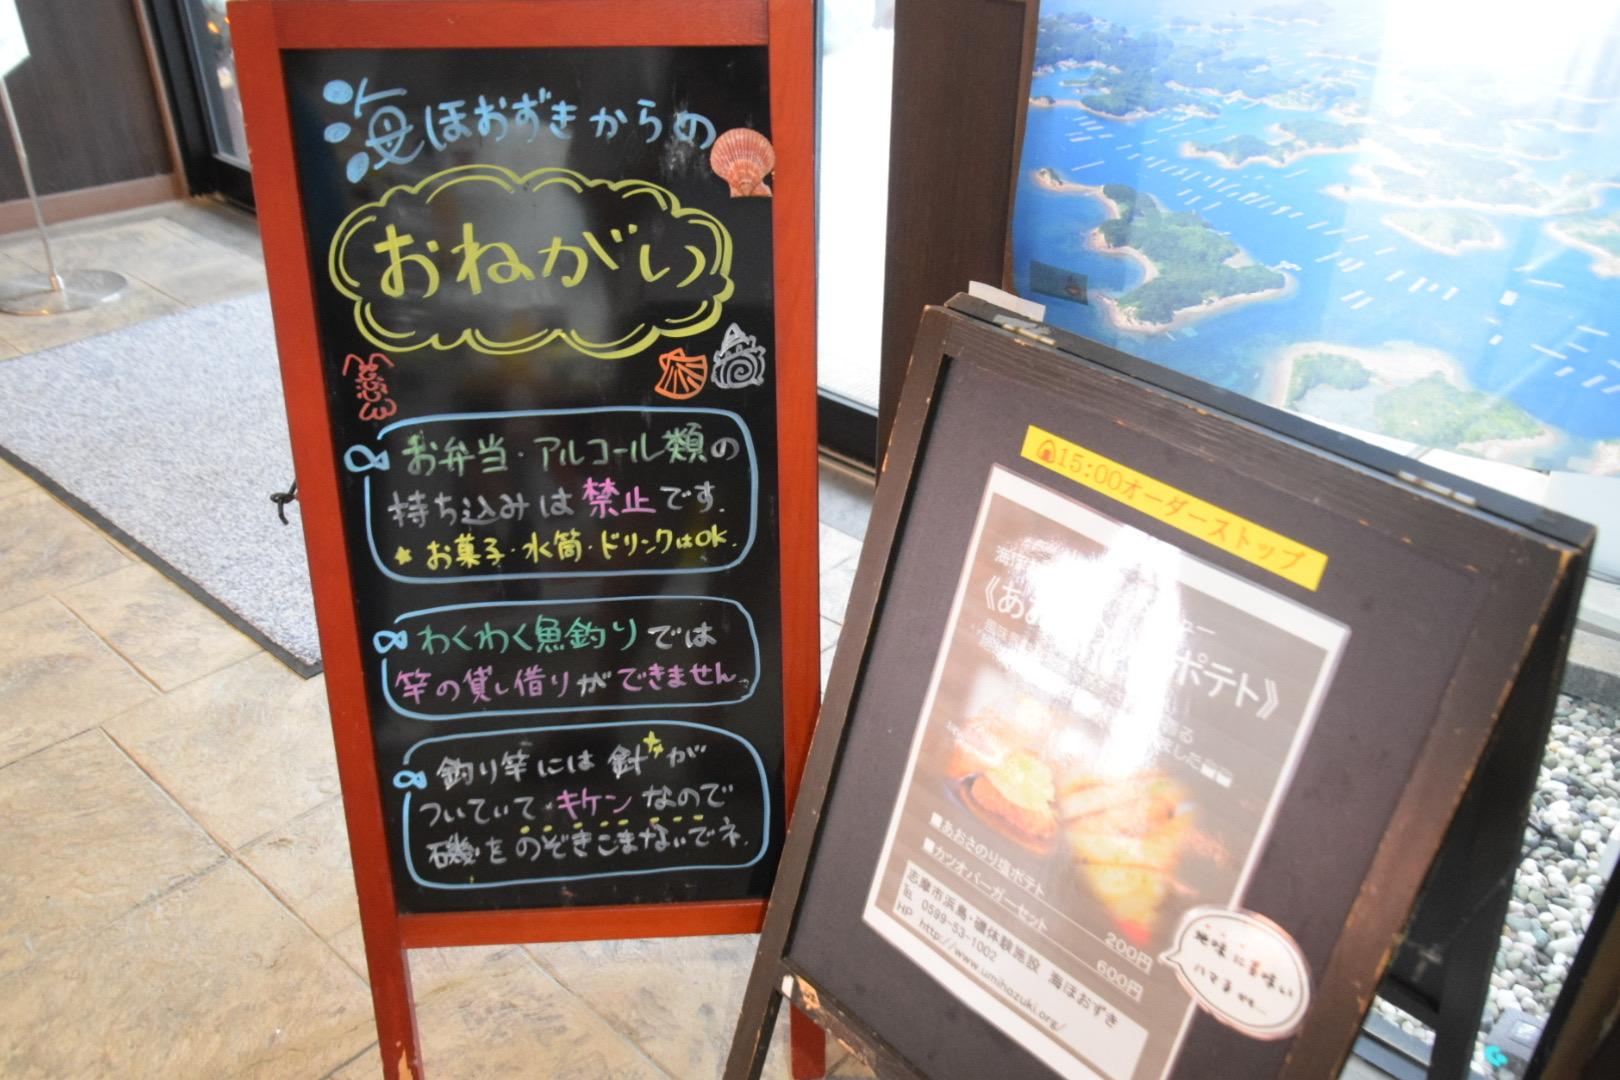 海ほおずきからの
おねがい
お弁当・アルコール類の
持ち込みは禁止です.
★お菓子・水筒・ドリンクはOK.
わくわく魚釣りでは
竿の貸し借りができません
釣り竿には針が
ついていてキケンなので
磯をのぞきこまないでネ.
15:00オーダーストップ
《あ
ポテト》
ました
■あおさのり塩ポテト 200円
■カツオバーガーセット 600円
志摩市浜島・磯体験施設 海ほおずき
℡ 0599-53-1002
HP http://www.umihozuki.org/
地味に美味い
ハマるぜ~